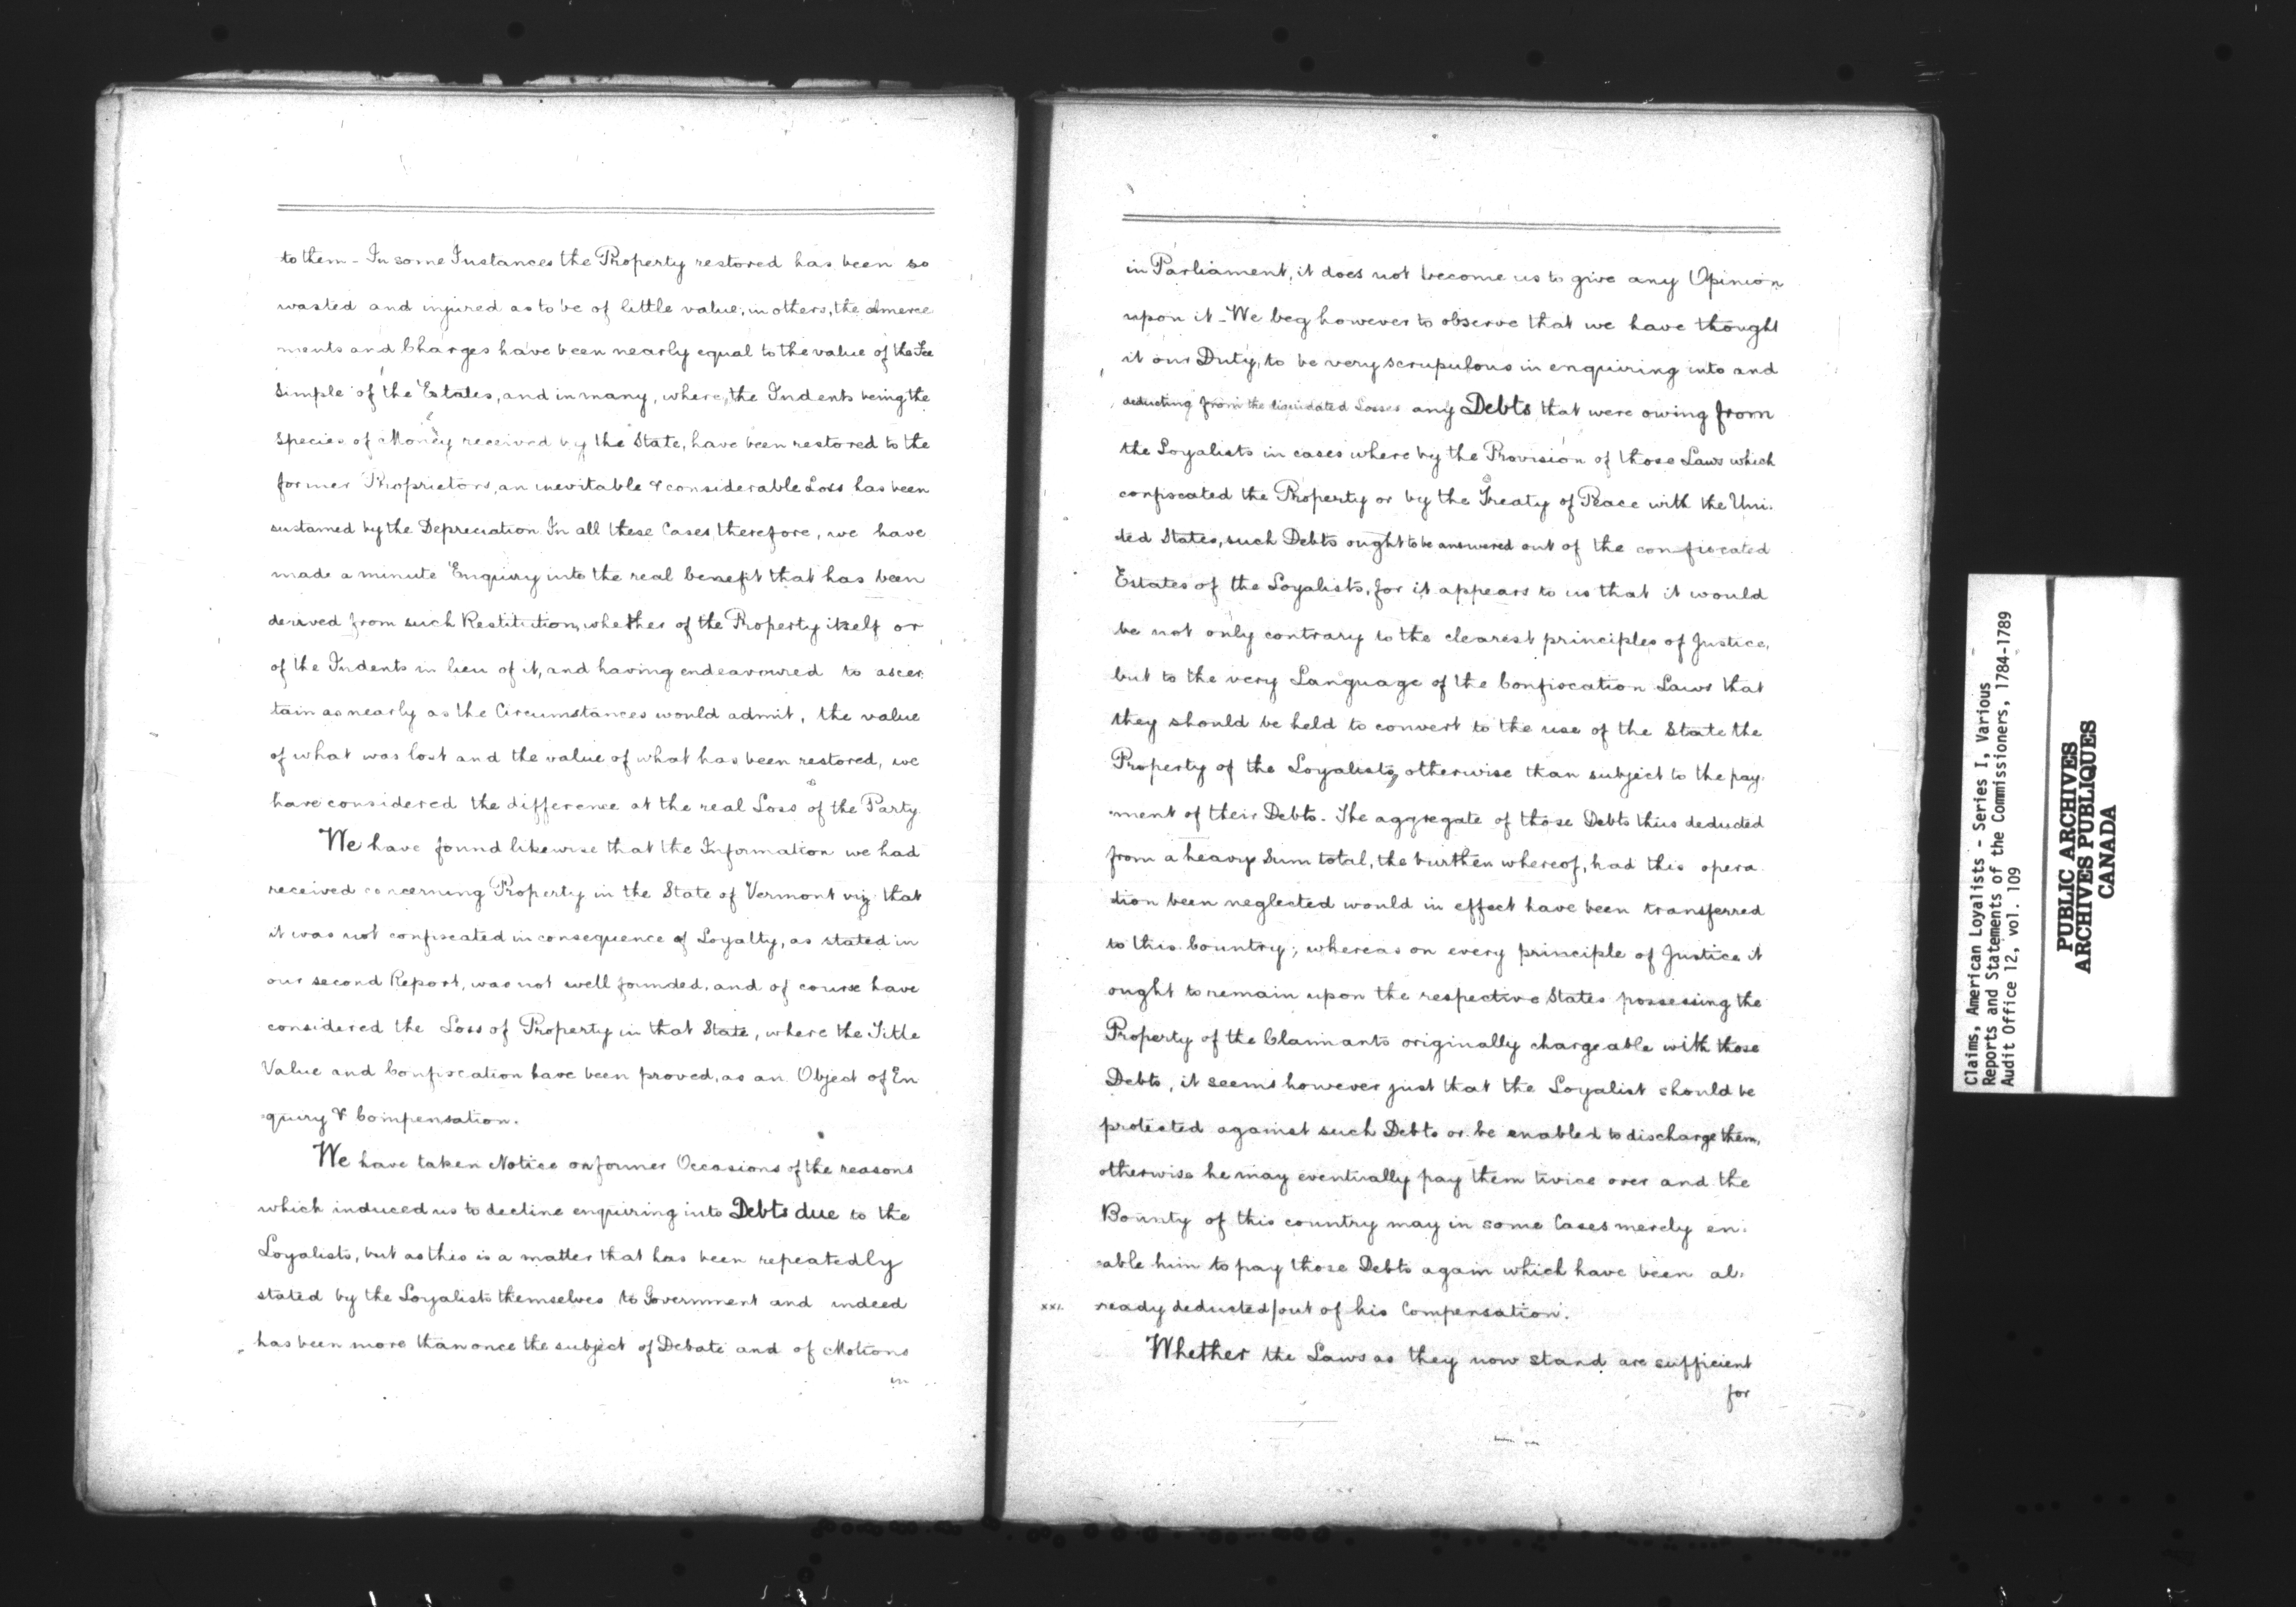 to them - In some Instances the Property restored has been so
wasted and injured as to be of little value; in others, the Amerce
ments and Charges have been nearly equal to the value of the Fee
Simple of the Estates, and in many, where, the Indents being the
Species of Money received by the State, have been restored to the
former Proprietors, an inevitable & considerable Loss has been
sustained by the Depreciation In all these Cases therefore, we have
made a minute Enquiry into the real benefit that has been
derived from such Restitution, whether of the Property itself or
of the Indents in lieu of it, and having endeavoured to ascer
tain as nearly as the Circumstances would admit, the value
of what was lost and the value of what has been restored, we
have considered the difference at the real Loss of the Party
We have found likewise that the Information we had
received concerning Property in the State of Vermont viz that
it was not confiscated in consequence of Loyalty, as stated in
our second Report, was not well founded, and of course have
considered the Loss of Property in that State, where the Title
Value and Confiscation have been proved, as an Object of En
quiry & Compensation.
We have taken Notice on former Occasions of the reasons
which induced us to decline enquiring into Debts due to the
Loyalists, but as this is a matter that has been repeatedly
stated by the Loyalists themselves to Government and indeed
has been more than once the subject of Debate and of Motions
in
in Parliament, it does not become us to give any Opinion
upon it - We beg however to observe that we have thought
it our Duty, to be very scrupulous in enquiring into and
deducting from the liquidated Losses any Debts that were owing from
the Loyalists in cases where by the Provision of those Laws which
confiscated the Property or by the Treaty of Peace with the Uni-
ted States, such Debts ought to be answered out of the confiscated
Estates of the Loyalists, for it appears to us that it would
be not only contrary to the clearest principles of Justice,
but to the very Language of the Confiscation Laws that
they should be held to convert to the use of the State the
Property of the Loyalists, otherwise than subject to the pay-
ment of their Debts. The aggregate of those Debts thus deducted
from a heavy Sum total, the burthen whereof, had this opera
tion been neglected would in effect have been transferred
to this Country; whereas on every principle of Justice it
ought to remain upon the respective States possessing the
Property of the Claimants originally chargeable with those
Debts, it seems however just that the Loyalist should be
protected against such Debts or be enabled to discharge them,
otherwise he may eventually pay them twice over and the
Bounty of this country may in some Cases merely en-
able him to pay those Debts again which have been al-
xxi. ready deducted out of his Compensation.
Whether the Laws as they now stand are sufficient
for
Claims, American Loyalists - Series I, Various
Reports and Statements of the Commissioners, 1784-1789
Audit Office 12, vol. 109
PUBLIC ARCHIVES
ARCHIVES PUBLIQUES
CANADA